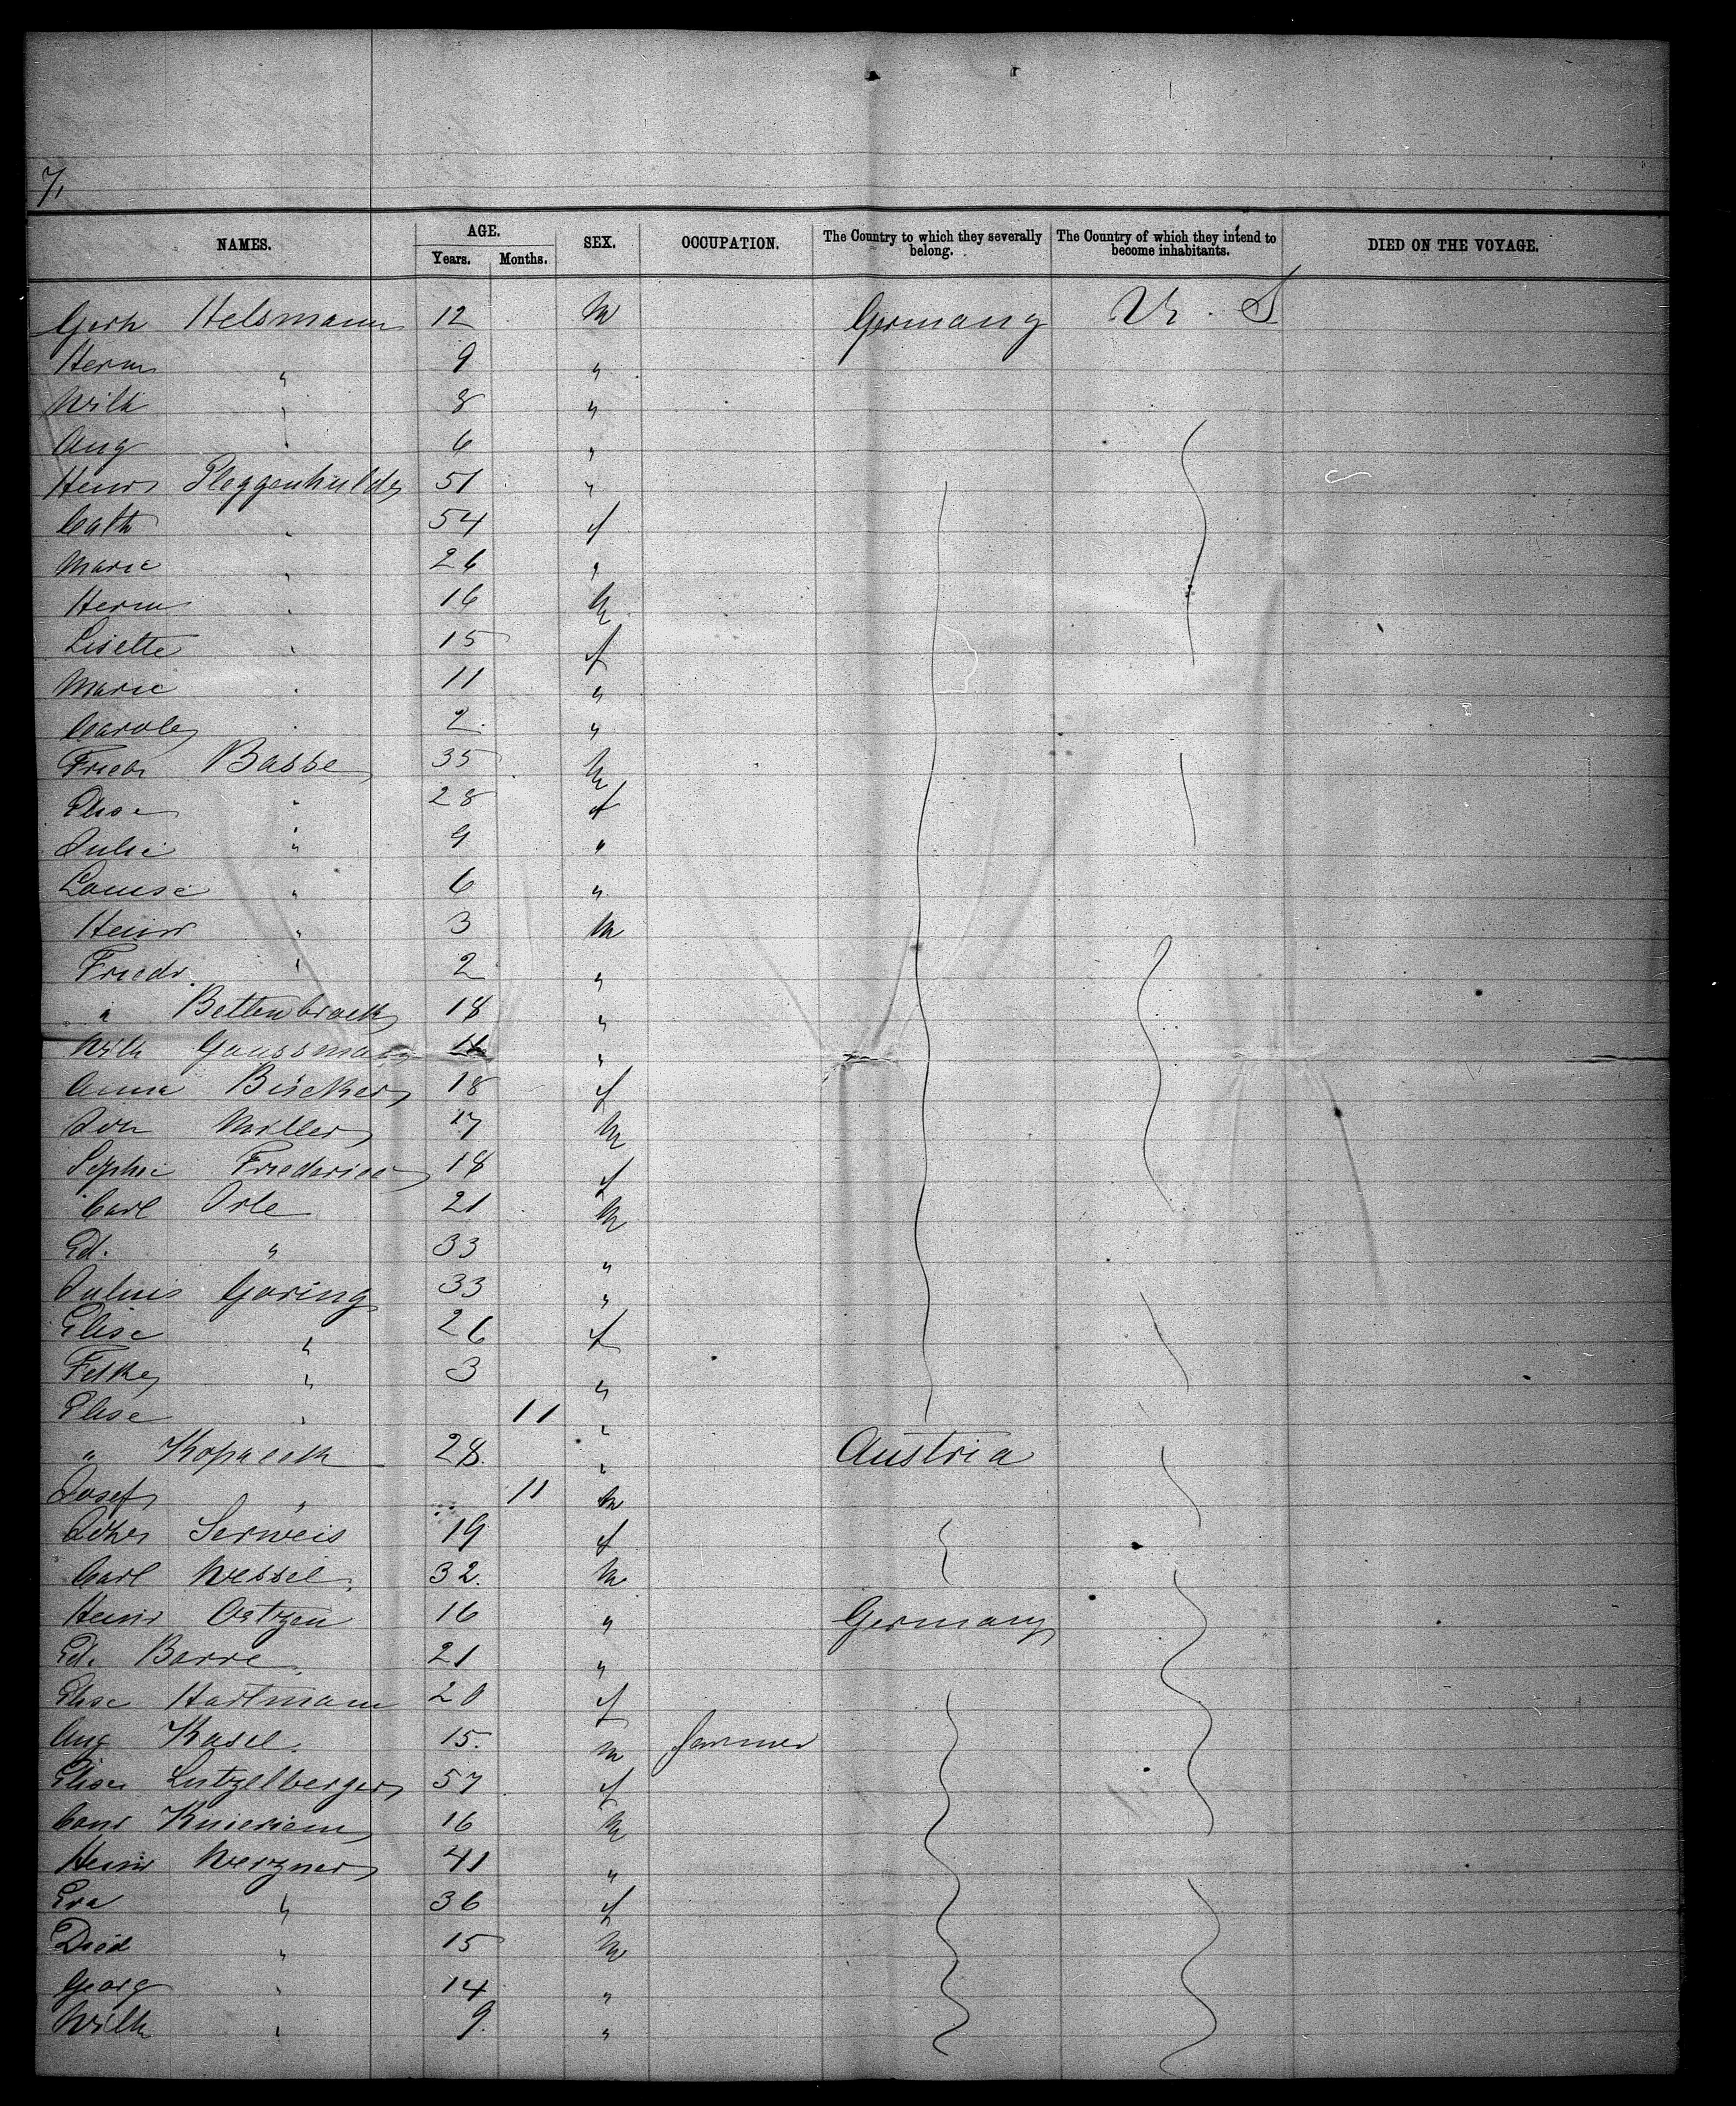 7,
NAMES. AGE. SEX. OCCUPATION. The Country to which they severally belong. The Country of which they intend to become inhabitants. DIED ON THE VOYAGE.
Years. Months.
Gerh Helsmann 12 M Germany U. S
Herm " 9 "
Wilh " 8 "
Aug " 6 "
Heinr 51 "
Cath " 54 f
Marie " 26 "
Herm " 16 M
Lisette " 15 f
Marie " 11 "
2 "
Friedr Basse 35 M
Elise " 28 f
Julie " 9 "
Louise " 6 "
Heinr " 3 M
Friedr. " 2 "
" Bettenbrock 18 "
Wilh Gaussmann "
Anna Bischer 18 f
Joh Miller 17 M
Sophie 18 f
Carl Orle 21 M
Ed. " 33 "
Julius Goring 33 "
Elise " 26 f
" 3 "
Elise " 11 "
" 28. " Austria
Josef " 11 M
Serweis 19 f
Carl Wessel 32. M
Heinr Oetzen 16 " Germany
Ed. Barre 21 "
Elise Hartmann 20 f
Aug Kasel. 15. M farmer
Elise Lutzelberger 57 f
Conr Knieriem 16 M
Heinr Werzner 41 "
Eva " 36 f
Died " 15 M
Georg " 14 "
Wilh " 9. "